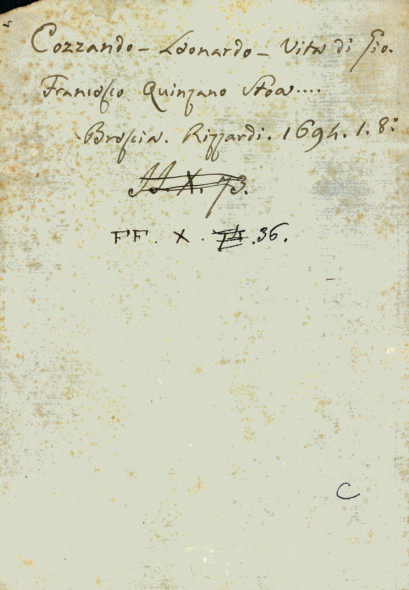 Cozzando - Leonardo - Vita di Gio.
Francesco Quinzano Stoa....
Brescia. Rizzardi. 1694. 1. 8:
X. 73.
FF. X. 36.
C